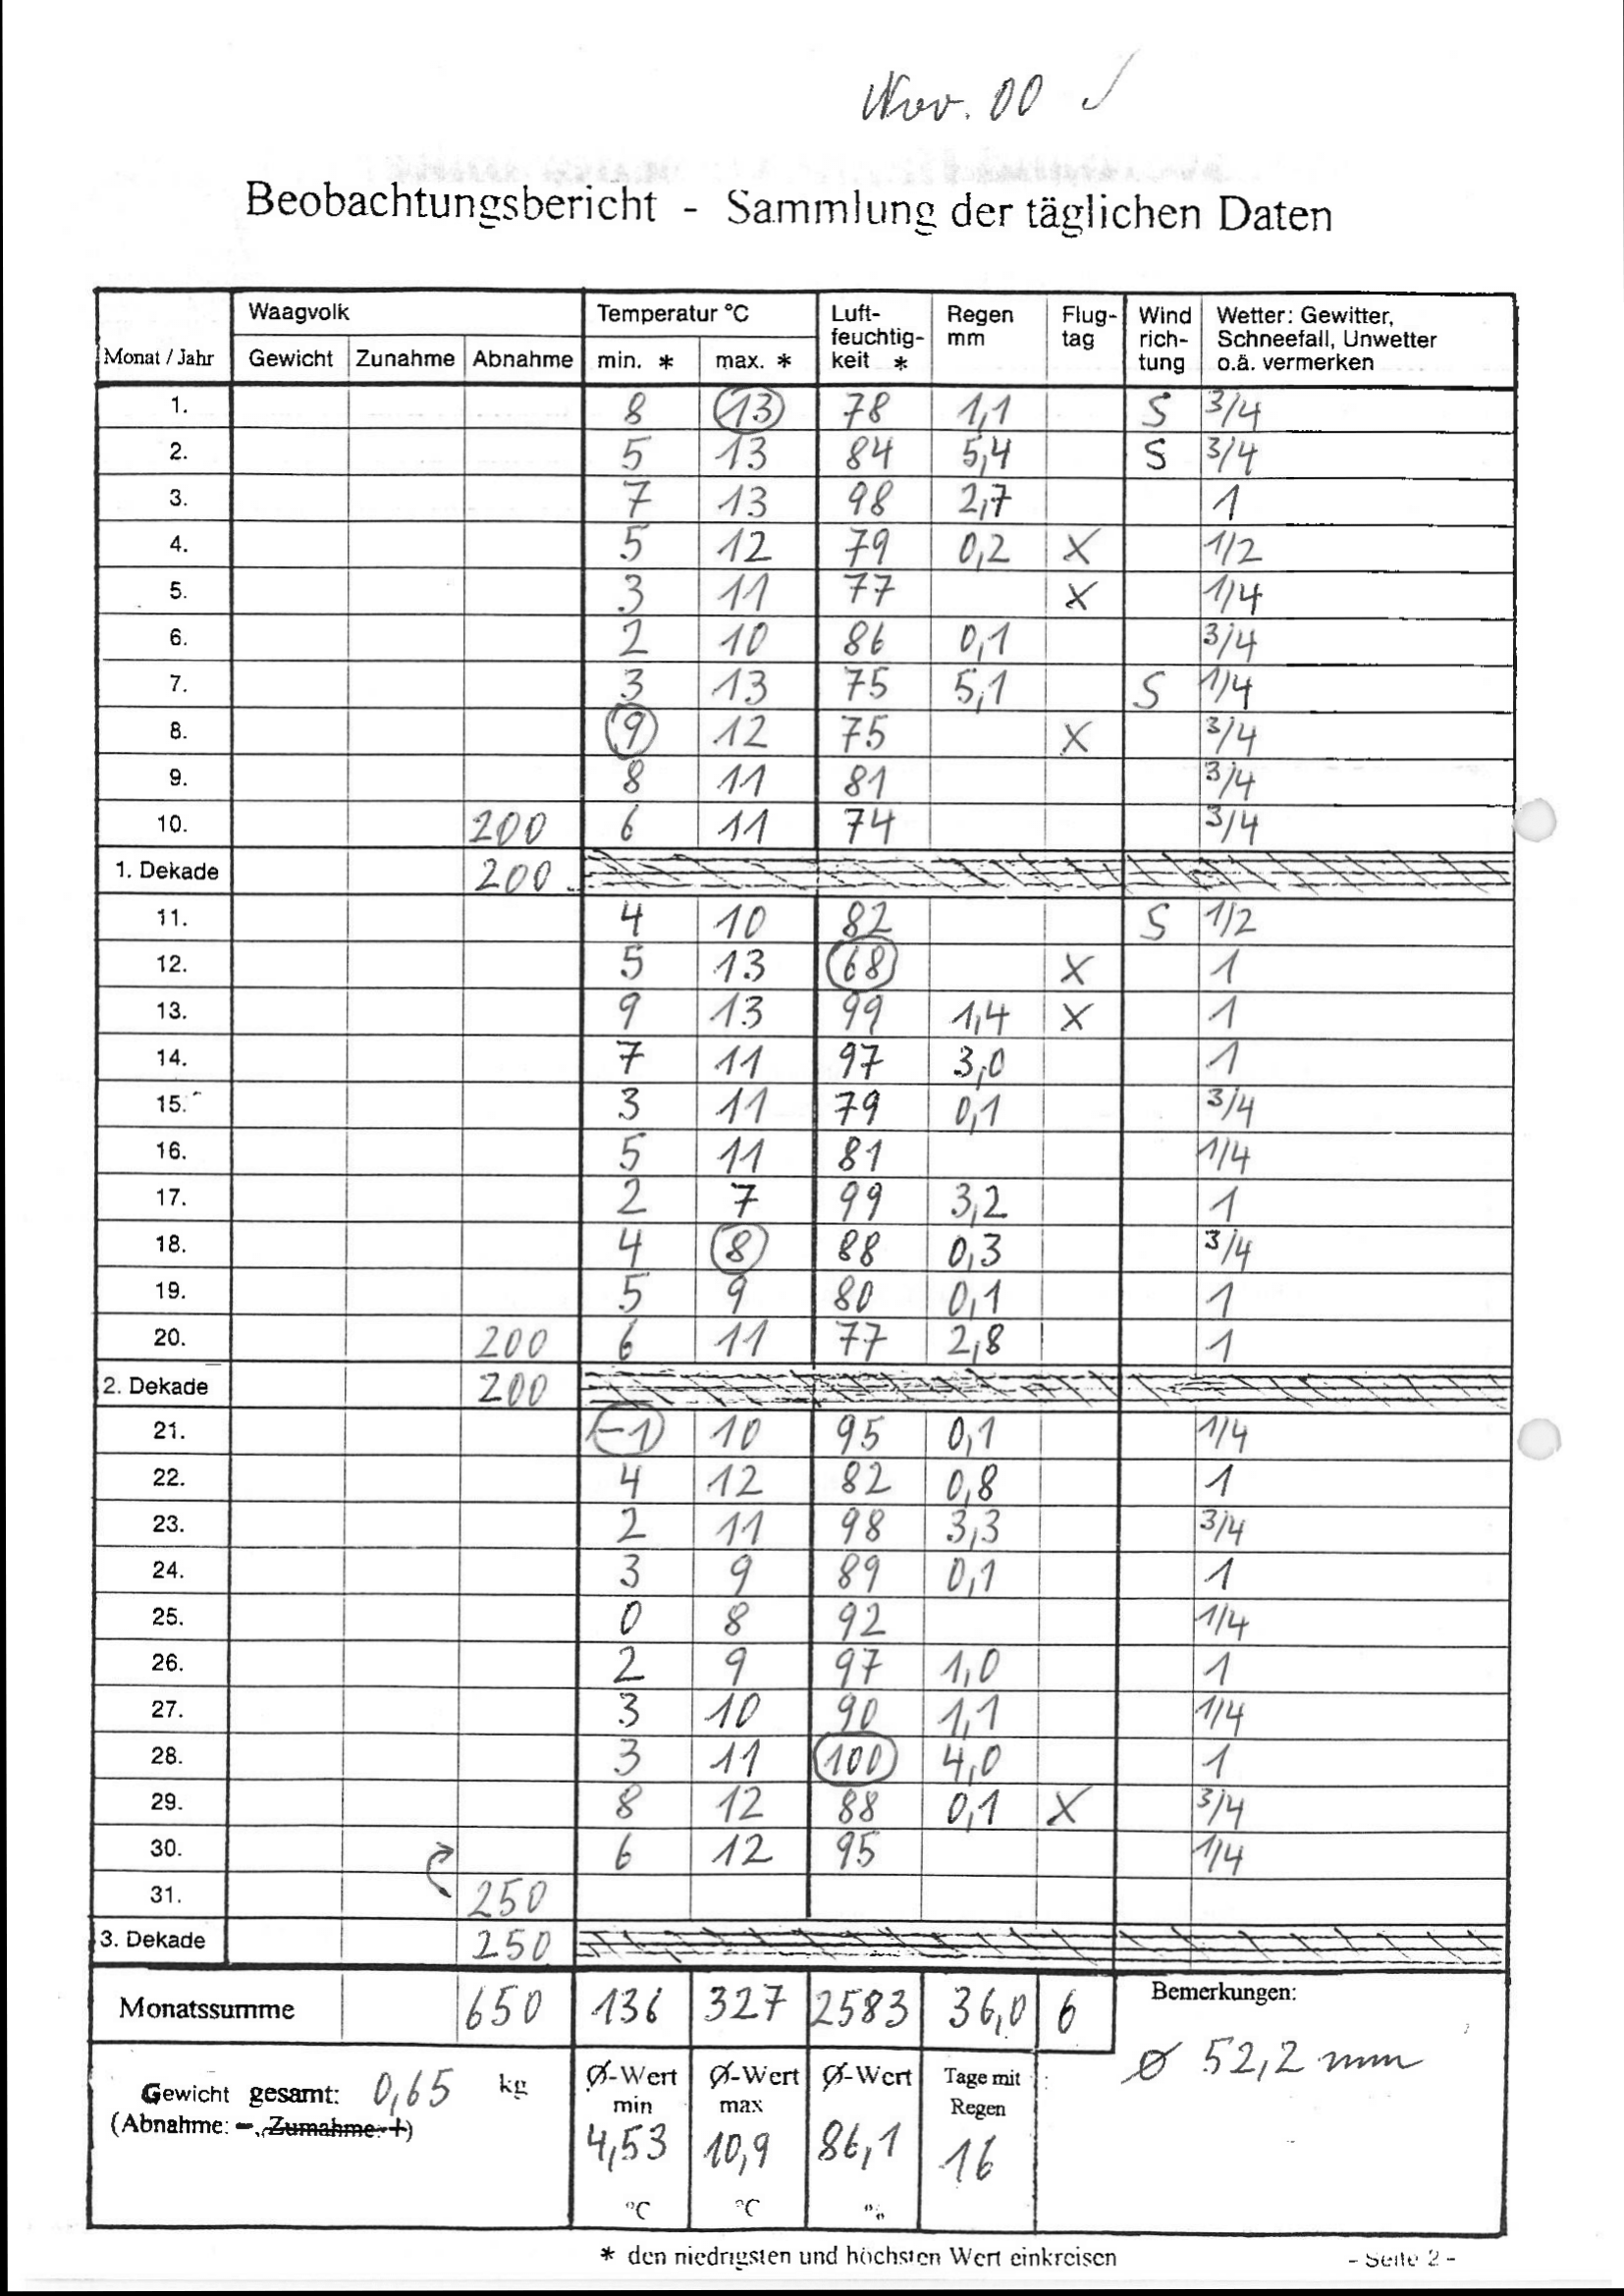 Nov. 00 ✓
Beobachtungsbericht - Sammlung der täglichen Daten
Monat / Jahr Waagvolk Temperatur °C Luft-feuchtig-keit * Regen mm Flug-tag Wind rich-tung Wetter: Gewitter, Schneefall, Unwetter o.ä. vermerken
Gewicht Zunahme Abnahme min. * max. *
1. 8 13 78 1,1 S 3/4
2. 5 13 84 5,4 S 3/4
3. 7 13 98 2,7 1
4. 5 12 79 0,2 X 1/2
5. 3 11 77 X 1/4
6. 2 10 86 0,1 3/4
7. 3 13 75 5,1 S 1/4
8. 9 12 75 X 3/4
9. 8 11 81 3/4
10. 200 6 11 74 3/4
1. Dekade 200
11. 4 10 82 S 1/2
12. 5 13 68 X 1
13. 9 13 99 1,4 X 1
14. 7 11 97 3,0 1
15. 3 11 79 0,1 3/4
16. 5 11 81 1/4
17. 2 7 99 3,2 1
18. 4 8 88 0,3 3/4
19. 5 9 80 0,1 1
20. 200 6 11 77 2,8 1
2. Dekade 200
21. -1 10 95 0,1 1/4
22. 4 12 82 0,8 1
23. 2 11 98 3,3 3/4
24. 3 9 89 0,1 1
25. 0 8 92 1/4
26. 2 9 97 1,0 1
27. 3 10 90 1,1 1/4
28. 3 11 100 4,0 1
29. 8 12 88 0,1 X 3/4
30. 6 12 95 1/4
31. 250
3. Dekade 250
Monatssumme 650 136 327 2583 36,0 6 Bemerkungen:
Ø 52,2 mm
Gewicht gesamt: 0,65 kg Ø-Wert min Ø-Wert max Ø-Wert Tage mit Regen
(Abnahme: -, Zumahme: +)
4,53 10,9 86,1 16
°C °C %
* den niedrigsten und höchsten Wert einkreisen
- Seite 2 -